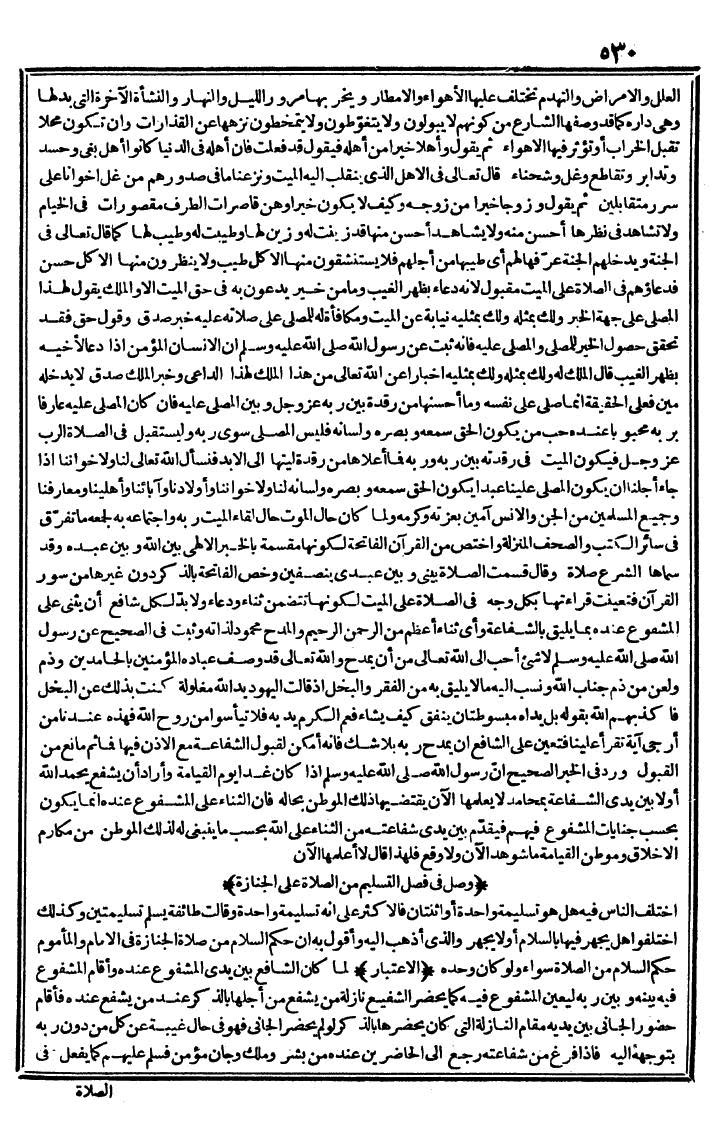 ٥٣٠
العلل والامراض والتهدم تختلف عليها الأهواء والامطار ويخربها مرور الليل والنهار والنشأة الآخرة التي بدلها
وهي داره كما قد وصفها الشارع من كونهم لا يبولون ولا يتغوّطون ولا يتمخطون نزهها عن القذارات وان تكون محلا
تقبل الخراب أو تؤثر فيها الاهواء ثم يقول وأهلا خيرا من أهله فيقول قد فعلت فان أهله في الدنيا كانوا أهل بغى وحسد
وتدابر وتقاطع وغل وشحناء قال تعالى في الاهل الذى ينقلب اليه الميت ونزعنا ما في صدورهم من غل اخوانا على
سرر متقابلين ثم يقول وزوجا خيرا من زوجه وكيف لا يكون خيرا وهن قاصرات الطرف مقصورات في الخيام
ولا تشاهد في نظرها أحسن منه ولا يشاهد أحسن منها قد زينت له وزين لها وطيبت له وطيب لها كما قال تعالى في
الجنة ويدخلهم الجنة عرّفها لهم أى طيبها من أجلهم فلا يستنشقون منها الا كل طيب ولا ينظرون منها الا كل حسن
فدعاؤهم في الصلاة على الميت مقبول لانه دعاء بظهر الغيب وما من خير يدعون به في حق الميت الا والملك يقول لهذا
المصلى على جهة الخبر ولك بمثله ولك بمثليه نيابة عن الميت ومكافأة له للمصلى على صلاته عليه خبر صدق وقول حق فقد
تحقق حصول الخير للمصلى والمصلى عليه فانه ثبت عن رسول الله صلى الله عليه وسلم ان الانسان المؤمن اذا دعا لأخيه
بظهر الغيب قال الملك له ولك بمثله ولك بمثليه اخبارا عن الله تعالى من هذا الملك لهذا الداعى وخبر الملك صدق لا يدخله
مين فعلى الحقيقة انما صلى على نفسه وما أحسنها من رقدة بين ربه عز وجل وبين المصلى عليه فان كان المصلى عليه عارفا
بربه محبوبا عنده حب من يكون الحق سمعه وبصره ولسانه فليس المصلى سوى ربه وليستقبل في الصلاة الرب
عز وجل فيكون الميت في رقدته بين ربه وربه فا أعلاها من رقدة ليتها الى الابد فنسأل الله تعالى لنا ولاخواننا اذا
جاء أجلنا ان يكون المصلى علينا عبدا يكون الحق سمعه وبصره ولسانه لنا ولاخواننا وأولادنا وآبائنا وأهلينا ومعارفنا
وجميع المسلمين من الجن والانس آمين بعزته وكرمه ولما كان حال الموت حال لقاء الميت ربه واجتماعه به لجمعه ما تفرّق
في سائر الكتب والصحف المنزلة واختص من القرآن الفاتحة لكونها مقسمة بالخبر الالهى بين الله وبين عبده وقد
سماها الشرع صلاة وقال قسمت الصلاة بيني وبين عبدى بنصفين وخص الفاتحة بالذكر دون غيرها من سور
القرآن فتعينت قراءتها بكل وجه في الصلاة على الميت لكونها تتضمن ثناء ودعاء ولا بدّ لكل شافع أن يثنى على
المشفوع عنده بما يليق بالشفاعة وأى ثناء أعظم من الرحمن الرحيم والمدح محمود لذاته وثبت في الصحيح عن رسول
الله صلى الله عليه وسلم لا شئ أحب الى الله تعالى من أن يمدح والله تعالى قد وصف عباده المؤمنين بالحامدين وذم
ولعن من ذم جناب الله ونسب اليه مالا يليق به من الفقر والبخل اذ قالت اليهود يد الله مغلولة كنت بذلك عن البخل
فا كذبهم الله بقوله بل يداه مبسوطتان ينفق كيف يشاء فعم الكرم يديه فلا تيأسوا من روح الله فهذه عندنا من
أرجى آية تقرأ علينا فتعين على الشافع ان يمدح ربه بلا شك فانه أمكن لقبول الشفاعة مع الاذن فيها فا ثم مانع من
القبول ورد في الخبر الصحيح انّ رسول الله صلى الله عليه وسلم اذا كان غدا يوم القيامة وأراد أن يشفع يحمد الله
أولا بين يدى الشفاعة بمحامد لا يعلمها الآن يقتضيها ذلك الموطن بحاله فان الثناء على المشفوع عنده انما يكون
بحسب جنايات المشفوع فيهم فيقدّم بين يدى شفاعته من الثناء على الله بحسب ما ينبغى له لذلك الموطن من مكارم
الاخلاق وموطن القيامة ما شوهد الآن ولا وقع فلهذا قال لا أعلمها الآن
﴿وصل في فصل التسليم من الصلاة على الجنازة﴾
اختلف الناس فيه هل هو تسليمة واحدة أو اثنتان فالاكثر على انه تسليمة واحدة وقالت طائفة يسلم تسليمتين وكذلك
اختلفوا هل يجهر فيها بالسلام أو لا يجهر والذى أذهب اليه وأقول به ان حكم السلام من صلاة الجنازة في الامام والمأموم
حكم السلام من الصلاة سواء ولو كان وحده ﴿الاعتبار﴾ لما كان الشافع بين يدى المشفوع عنده وأقام المشفوع
فيه بينه وبين ربه ليعين المشفوع فيه كما يحضر الشفيع نازلة من يشفع من أجلها بالذكر عند من يشفع عنده فأقام
حضور الجانى بين يديه مقام النازلة التي كان يحضرها بالذكر لو لم يحضر الجانى فهو في حال غيبة عن كل من دون ربه
بتوجهه اليه فاذا فرغ من شفاعته رجع الى الحاضرين عنده من بشر وملك وجان مؤمن فسلم عليهم كما يفعل في
الصلاة